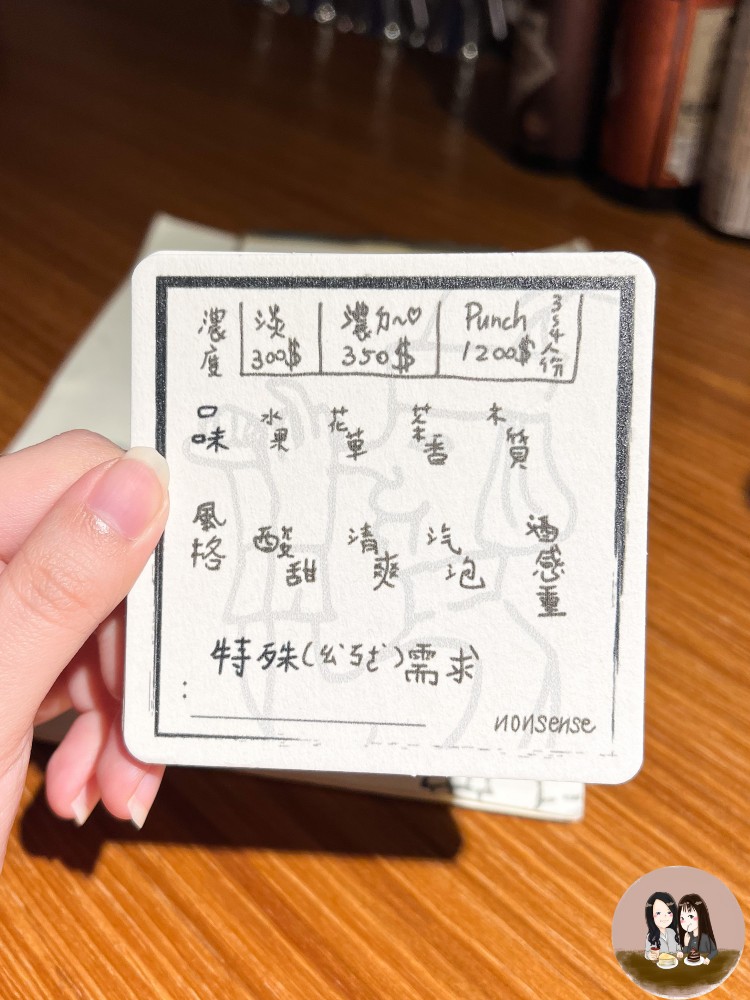 濃度 淡 濃ㄉ~♡ Punch 3~4人份
300$ 350$ 1200$
口味 水果 花草 茶香 木質
風格 酸甜 清爽 汽泡 酒感重
特殊(ㄠˋㄎㄜˋ)需求
:
nonsense